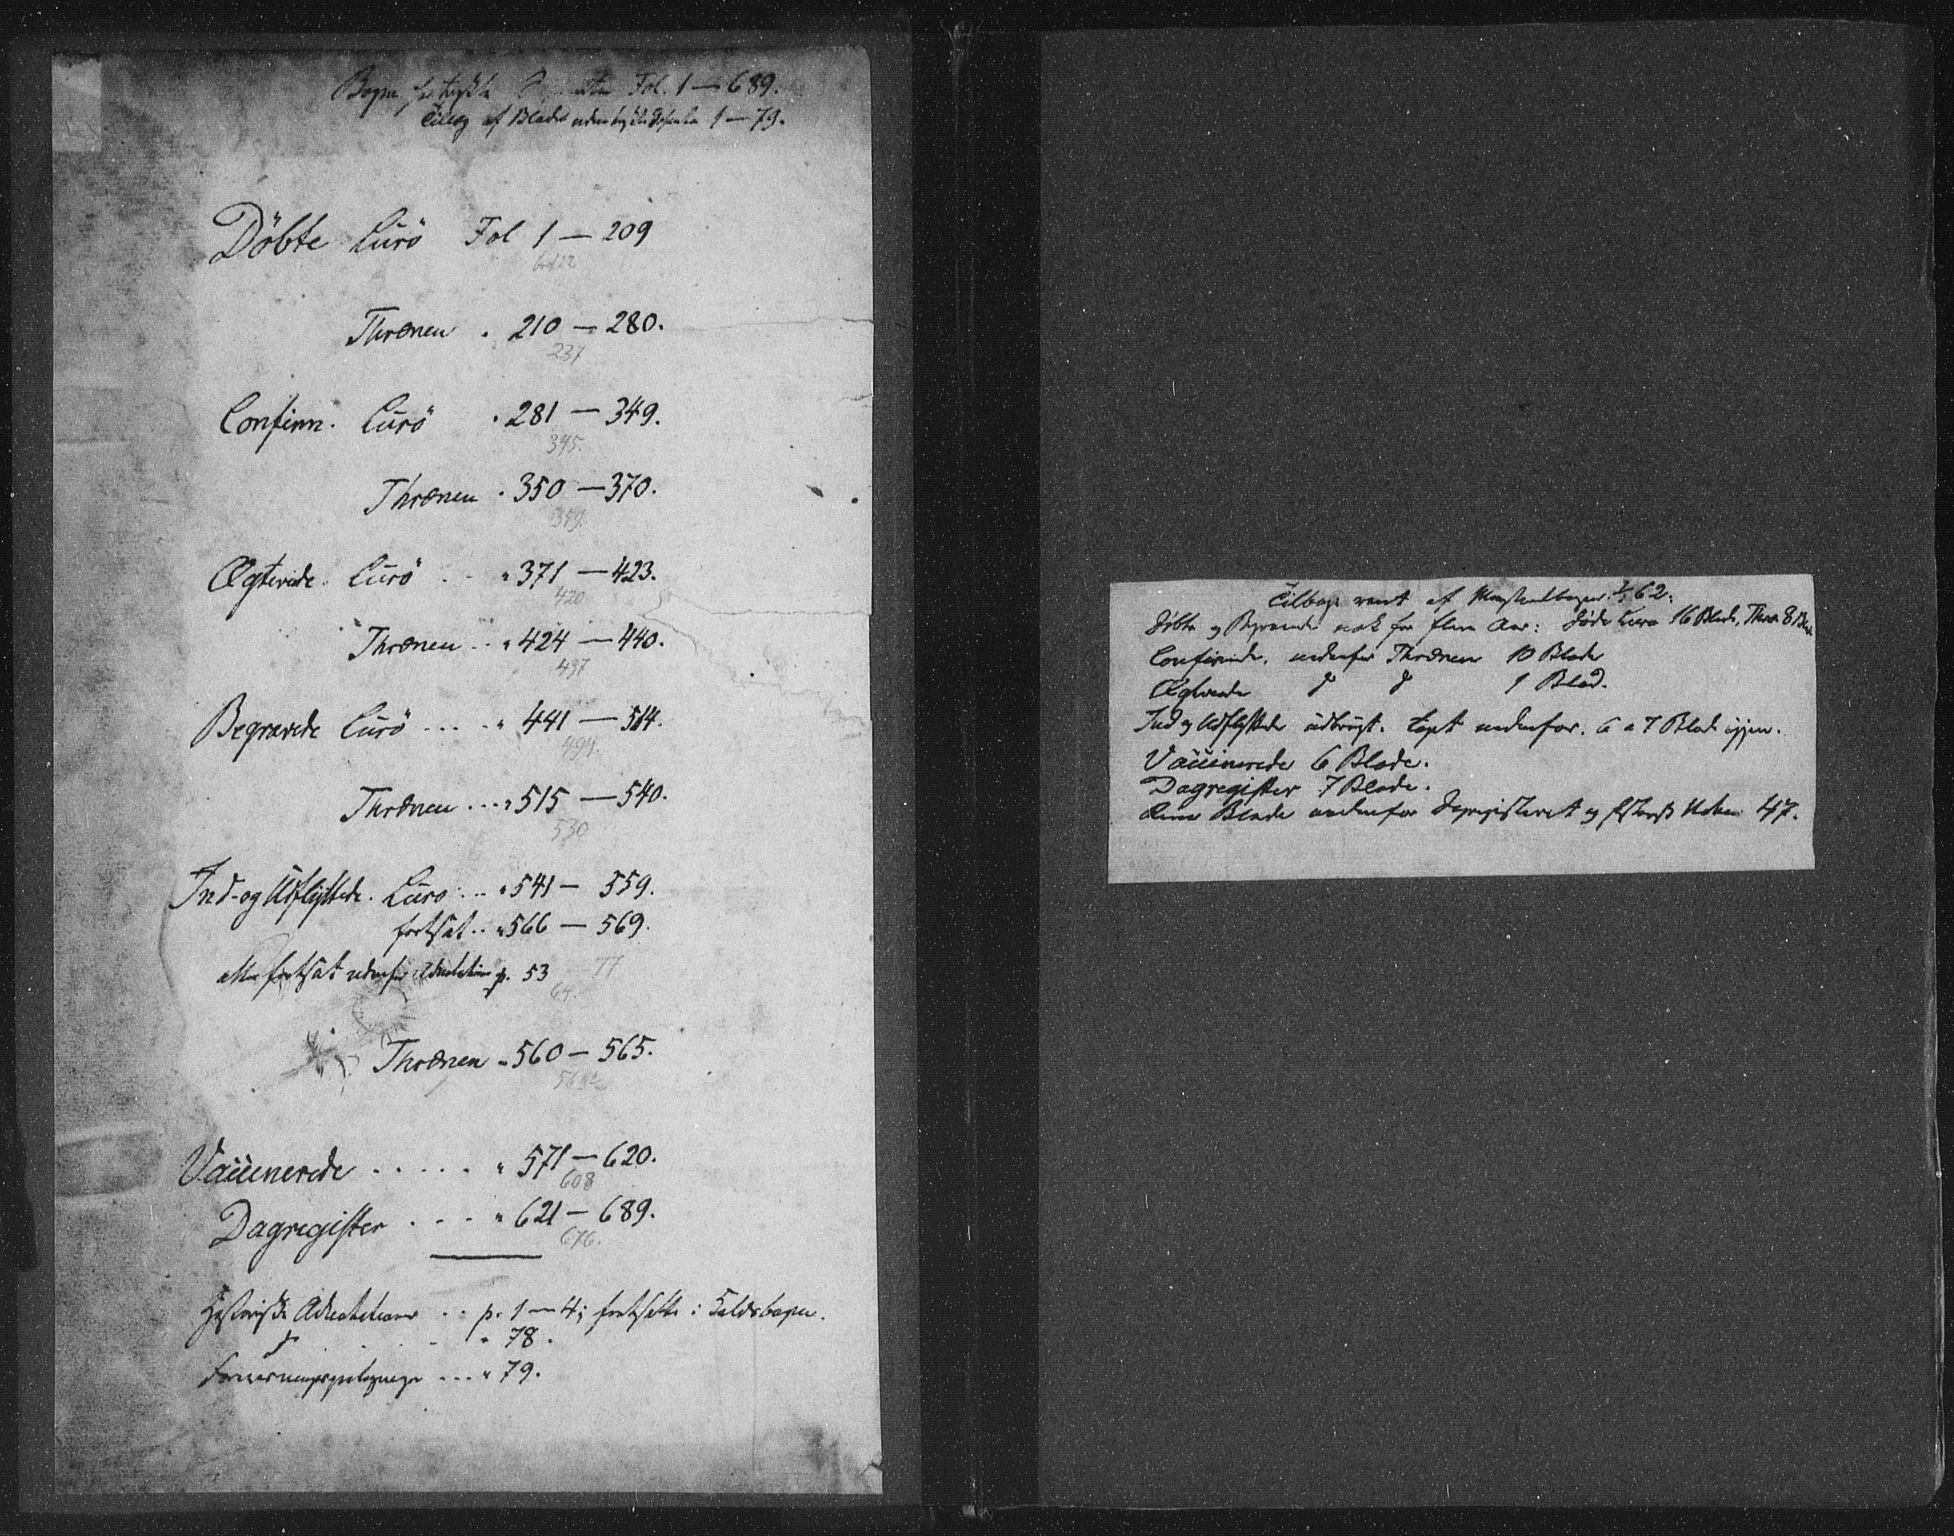 Bogen Fol. 1 — 689.
Tillæg af Blade 1 — 79.
Döbte Lurö Fol 1 — 209
Thrænen " 210 — 280.
237
Confirm. Lurö " 281 — 349.
345.
Thrænen " 350 — 370.
359.
Ægteviede. Lurö . . " 371 — 423.
420
Thrænen . . " 424 — 440.
437
Begravede Lurö . . . . " 441 — 514.
494.
Thrænen . . . " 515 — 540.
530
Ind- og Udflyttede. Lurö . . . " 541 — 559.
fortsat . . " 566 — 569.
fortsat p. 53 77
64.
Thrænen " 560 — 565.
Vaccinerede . . . . . " 571 — 620.
608
Dagregister . . . " 621 — 689.
676.
Historiske . . p. 1 — 4; fortsatte i Kaldsbogen.
" 78.
. . . " 79.
Tilbage af 62.
Döbte og Begravede nok for flere Aar: Lurö 16 Blade, Thræn 8
Confirmerede. Thrænen 10 Blade
Ægteviede 1 Blad.
Ind og Udflyttede udbrugt. 6 a 7 Blade igjen.
Vaccinerede 6 Blade.
Dagregister 7 Blade.
Rene Blade Dagregisteret og 47.